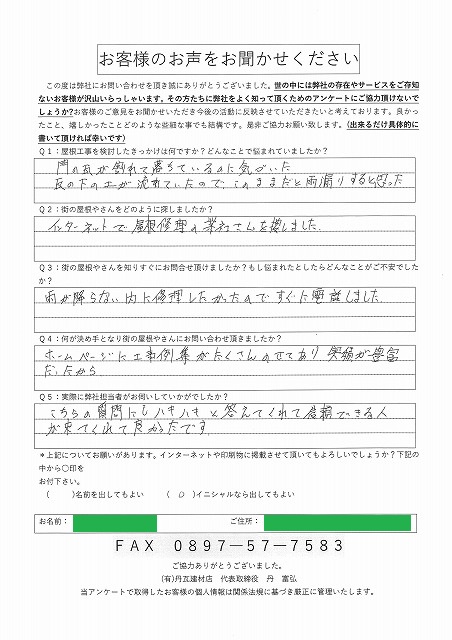 お客様のお声をお聞かせください
この度は弊社にお問い合わせを頂き誠にありがとうございました。世の中には弊社の存在やサービスをご存知
ないお客様が沢山いらっしゃいます。その方たちに弊社をよく知って頂くためのアンケートにご協力頂けないで
しょうか?お客様のご意見をお聞かせいただき今後の活動に反映させていただきたいと考えております。良かっ
たこと、嬉しかったことどのような些細な事でも結構です。是非ご協力お願い致します。(出来るだけ具体的に
書いて頂ければ幸いです)
Q1:屋根工事を検討したきっかけは何ですか?どんなことで悩まれていましたか?
門の瓦が割れて落ちているのに気がついた
瓦の下の土が流れていたので、このままだと雨漏りすると思った
Q2:街の屋根やさんをどのように探しましたか?
インターネットで屋根修理の業社さんを探しました。
Q3:街の屋根やさんを知りすぐにお問合せ頂けましたか?もし悩まれたとしたらどんなことがご不安でした
か?
雨が降らない内に修理したかったのですぐに電話しました
Q4:何が決め手となり街の屋根やさんにお問い合わせ頂きましたか?
ホームページに工事例集がたくさんのせてあり実績が豊富
だったから
Q5:実際に弊社担当者がお伺いしていかがでしたか?
こちらの質問にもハキハキと答えてくれて信頼できる人
が来てくれて良かったです。
*上記についてお願いがあります。インターネットや印刷物に掲載させて頂いてもよろしいでしょうか?下記の
中から〇印を
お付下さい。
( )名前を出してもよい ( ○ )イニシャルなら出してもよい
お名前: ご住所:
FAX 0897-57-7583
ご協力ありがとうございました。
(有)丹瓦建材店 代表取締役 丹 富弘
当アンケートで取得したお客様の個人情報は関係法規に基づき厳正に管理いたします。